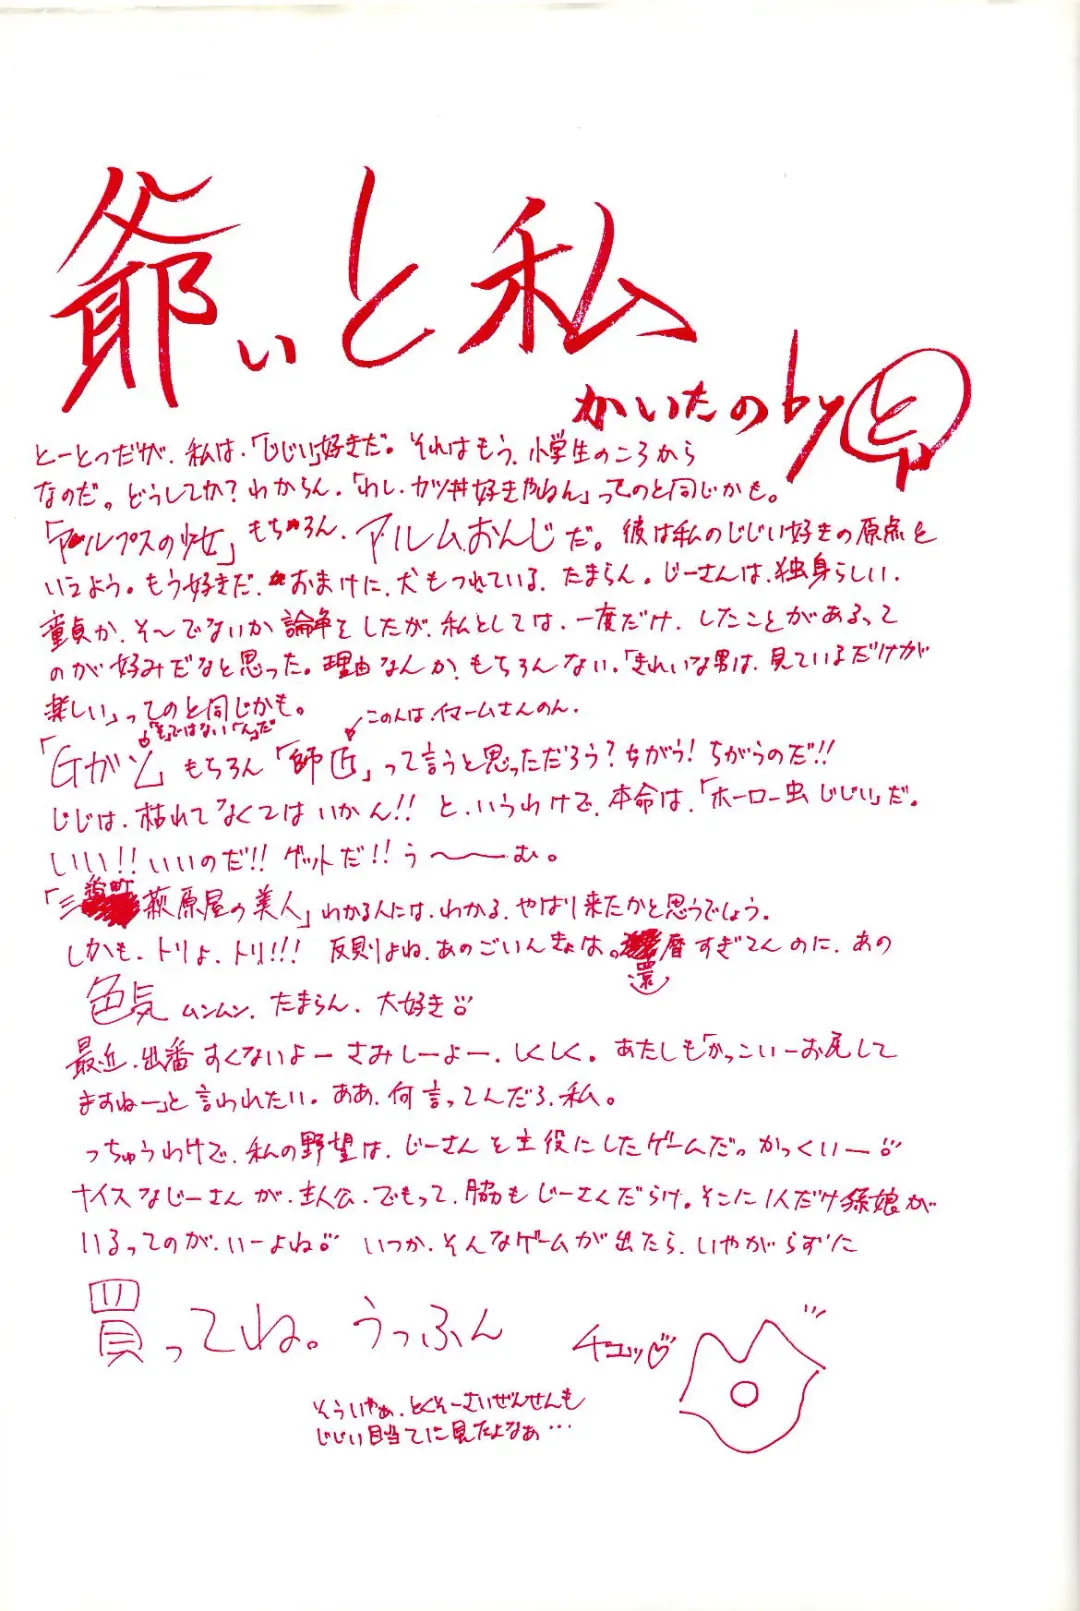 爺ぃと私
かいたの by と
とーとつだが、私は、「じじい」好きだ。それはもう、小学生のころから
なのだ。どうしてか？わからん。「わし、カツ丼好きやねん」ってのと同じかも。
「アルプスの少女」もちろん、アルムおんじだ。彼は私のじじい好きの原点と
いえよう。もう好きだ、おまけに、犬もつれている、たまらん。じーさんは、独身らしい、
童貞か、そ〜でないか論争をしたが、私としては、一度だけ、したことがあるって
のが好みだなと思った。理由なんか、もちろんない。「きれいな男は、見ているだけが
楽しい」ってのと同じかも。
「そ」ではない「ん」だ
この人は、イマームさんのん。
「Gガン」もちろん「師匠」って言うと思っただろう？ちがう！ちがうのだ!!
じじは、枯れてなくてはいかん!! と、いうわけで、本命は、「ホーロー虫じじい」だ。
いい!! いいのだ!! ゲットだ!! う〜〜む。
「三番町萩原屋の美人」わかる人には、わかる、やはり来たかと思うでしょう。
しかも、トリよ、トリ!!! 反則よね、あのごいんきょは。還暦すぎてんのに、あの
色気ムンムン、たまらん、大好き♡
最近、出番すくないよーさみしーよー、しくしく。あたしも「かっこいーお尻して
ますねー」と言われたい。ああ、何言ってんだろ、私。
っちゅうわけで、私の野望は、じーさんを主役にしたゲームだ。かっくいー♡
ナイスなじーさんが、主人公、でもって、脇もじーさんだらけ。そこに1人だけ孫娘が
いるってのが、いーよね♡ いつか、そんなゲームが出たら、いやがらずに
買ってね。うっふん
チュッ♡
そういやぁ、とくそーさいぜんせんも
じじい目当てに見たよなぁ…